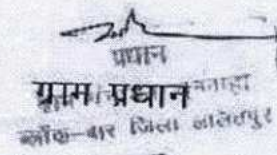 प्रधान
ग्राम प्रधान
ब्लॉक-बार जिला ललितपुर